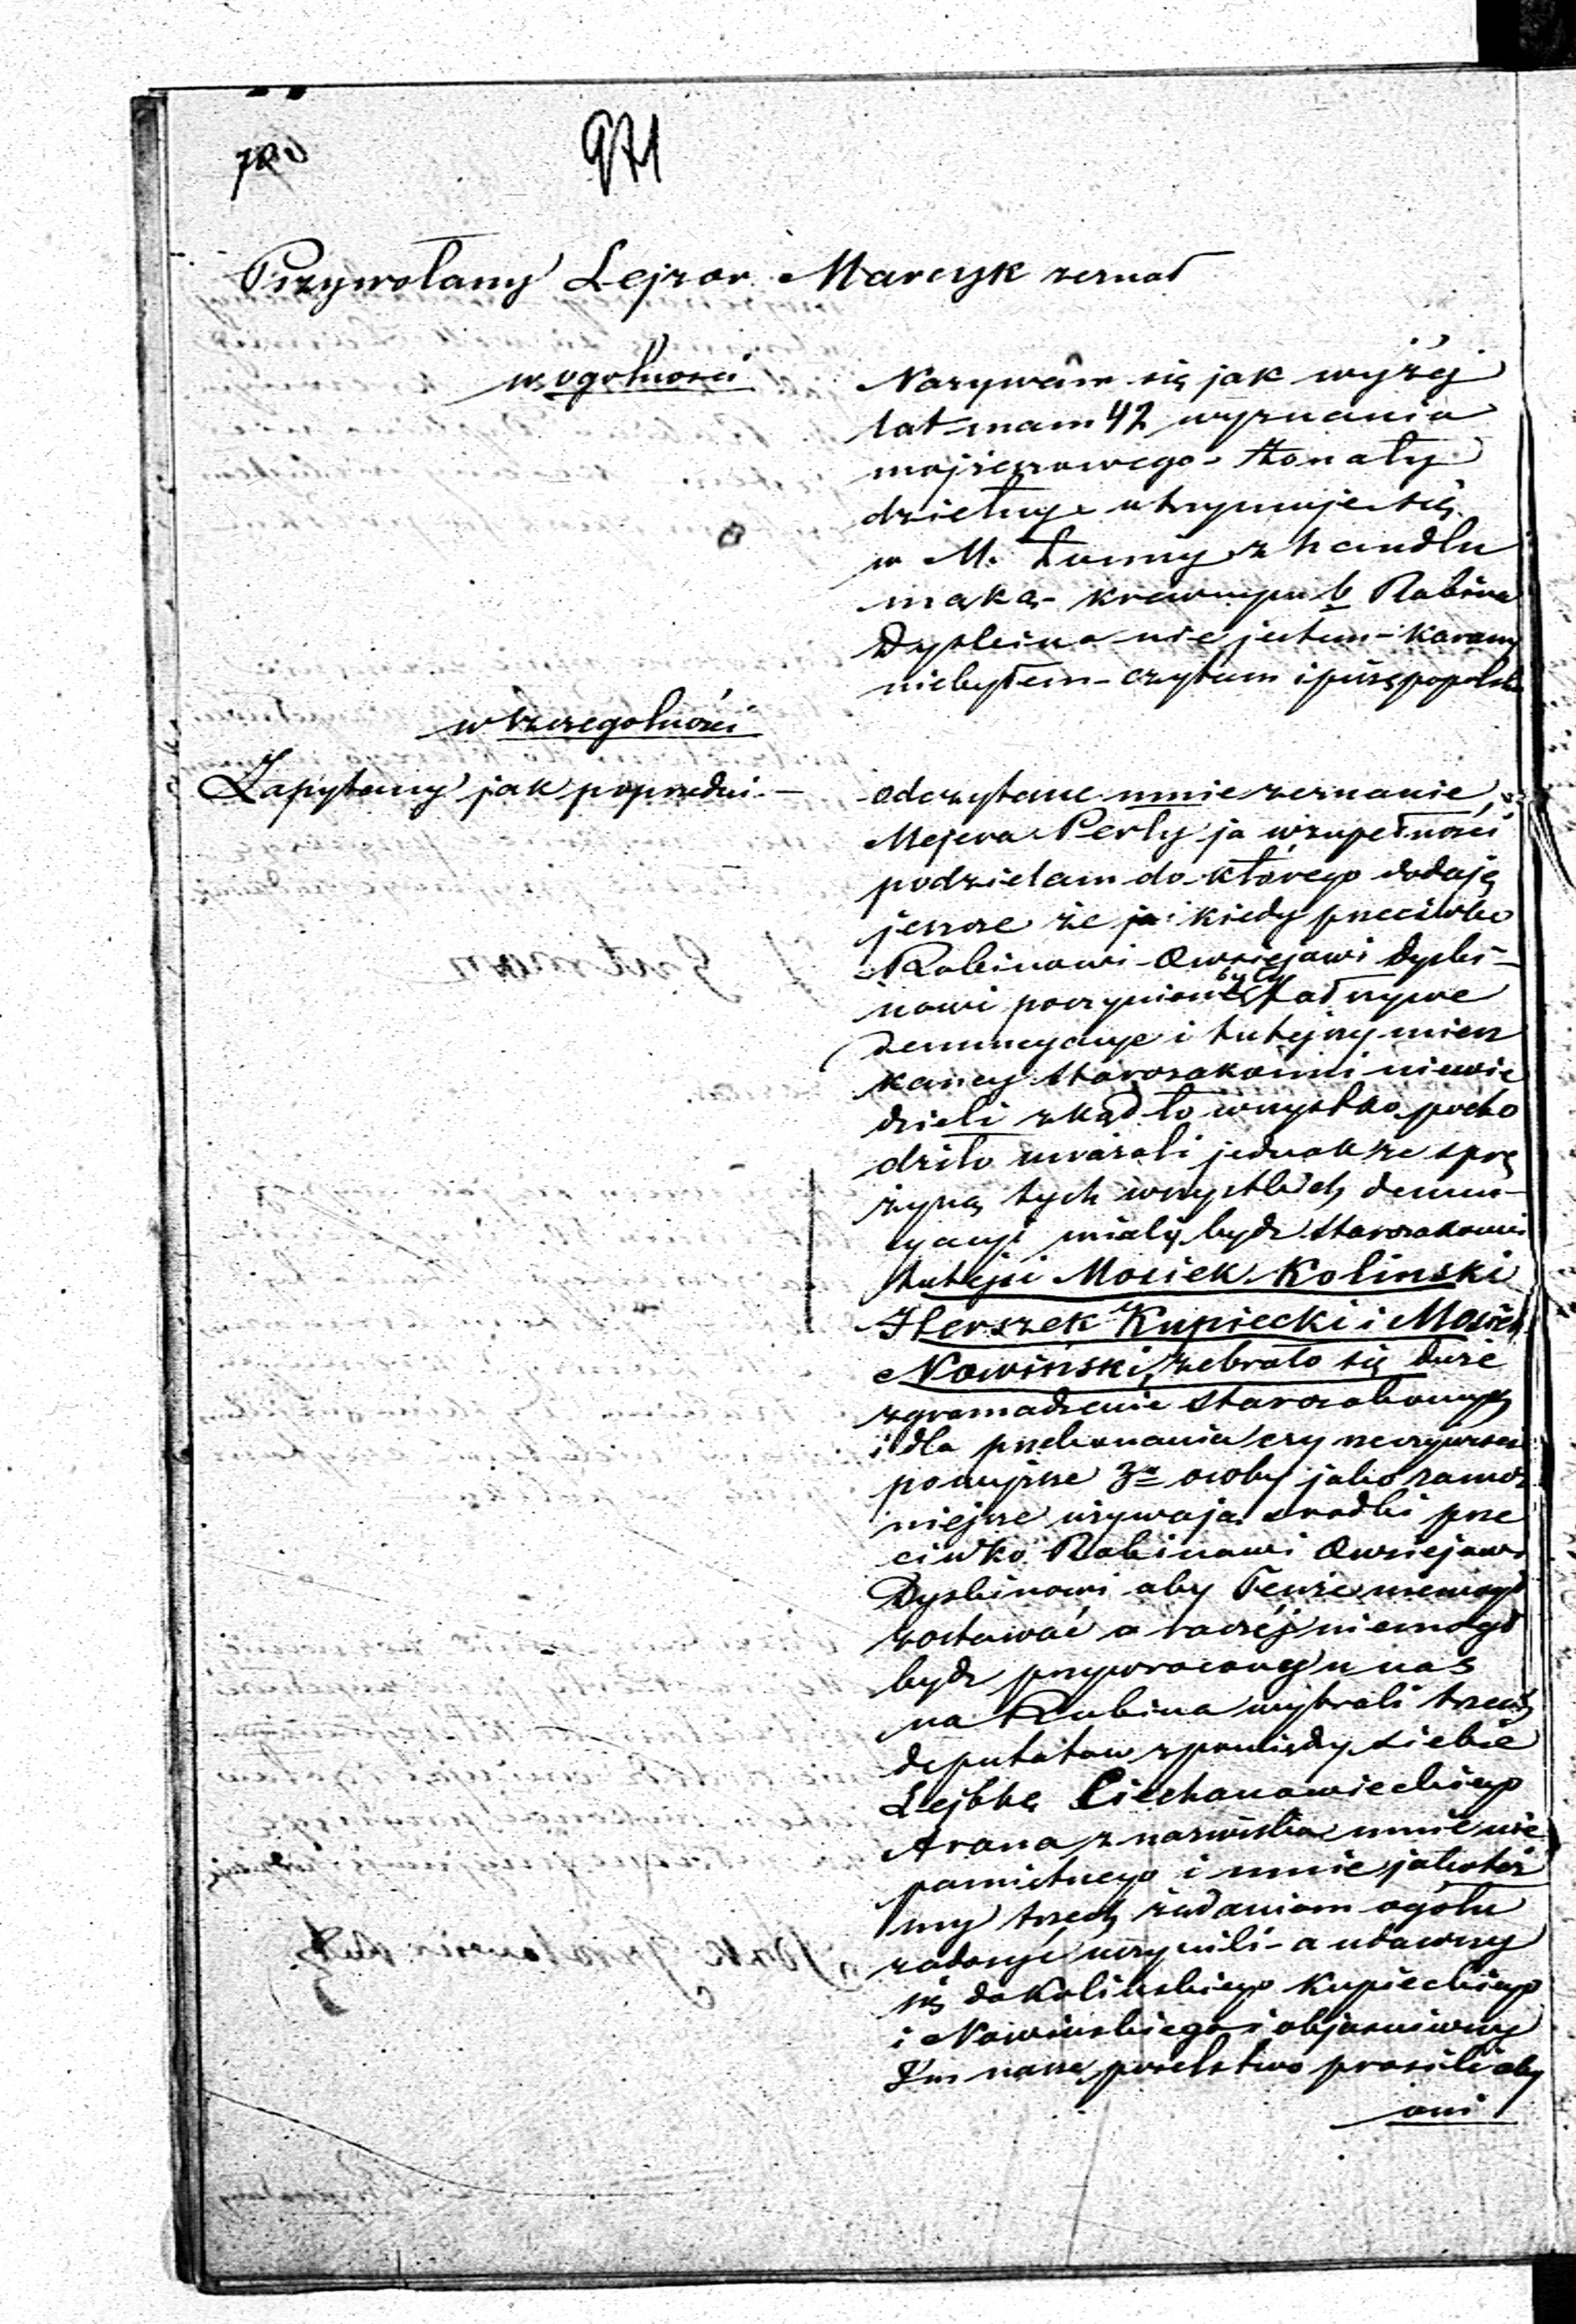 971
Przywołany Lejzor Marczyk zeznał
w ogolności
Nazywam się jak wyżéj
lat mam 42 wyznania
mojżeszowego Żonaty
dzietny utrzymuje się
w M. Łomży z handlu
mąką - krewnym b Rabina
Dyskina nie jestem - karany
niebyłem - czytam i piszę popolsku
w szczegolności
Zapytany jak poprzedni. —
odczytane mnie zeznanie
Mejera Perly ja wzupełności
podzielam do którego dodaję
jeszcze że ja kiedy przeciwko
Rabinowi Owsiejowi Dyski-
nowi poczynione były fałszywe
denuncyacye i tutejszy miesz
kancy Starozakonni niewie
dzieli zkąd to wszystko pocho
dziło uważali jednakże sprę
żyną tych wszystkich denun-
cyacyi miały bydz Starozakonni
tutejsi Mosiek Kolinski
Herszek Kupiecki i Mosiek
Nowiński, zebrało się duże
zgromadzenie starozakonnych
i dla przekonania czy rzeczywiscie
powyższe 3y osoby jako zamoż
niejsze używają srodki prze
ciwko Rabinowi Owsiejowi
Dyskinowi aby Tenże niemógł
zostawać a raczéj niemogł
bydz przywrocony u nas
na Rabina wybrali trzech
deputatow zpomiędzy siebie
Lejbkę Ciechanowieckiego
Arona z nazwiska mnie nie
pamiętnego i mnie jakoteż
my trzech żądaniom ogółu
zadosyć uczynili - a udawszy
się do Kolinskiego Kupieckiego
i Nowinskiego i objasniwszy
Im nasze poselstwo prosili aby
oni